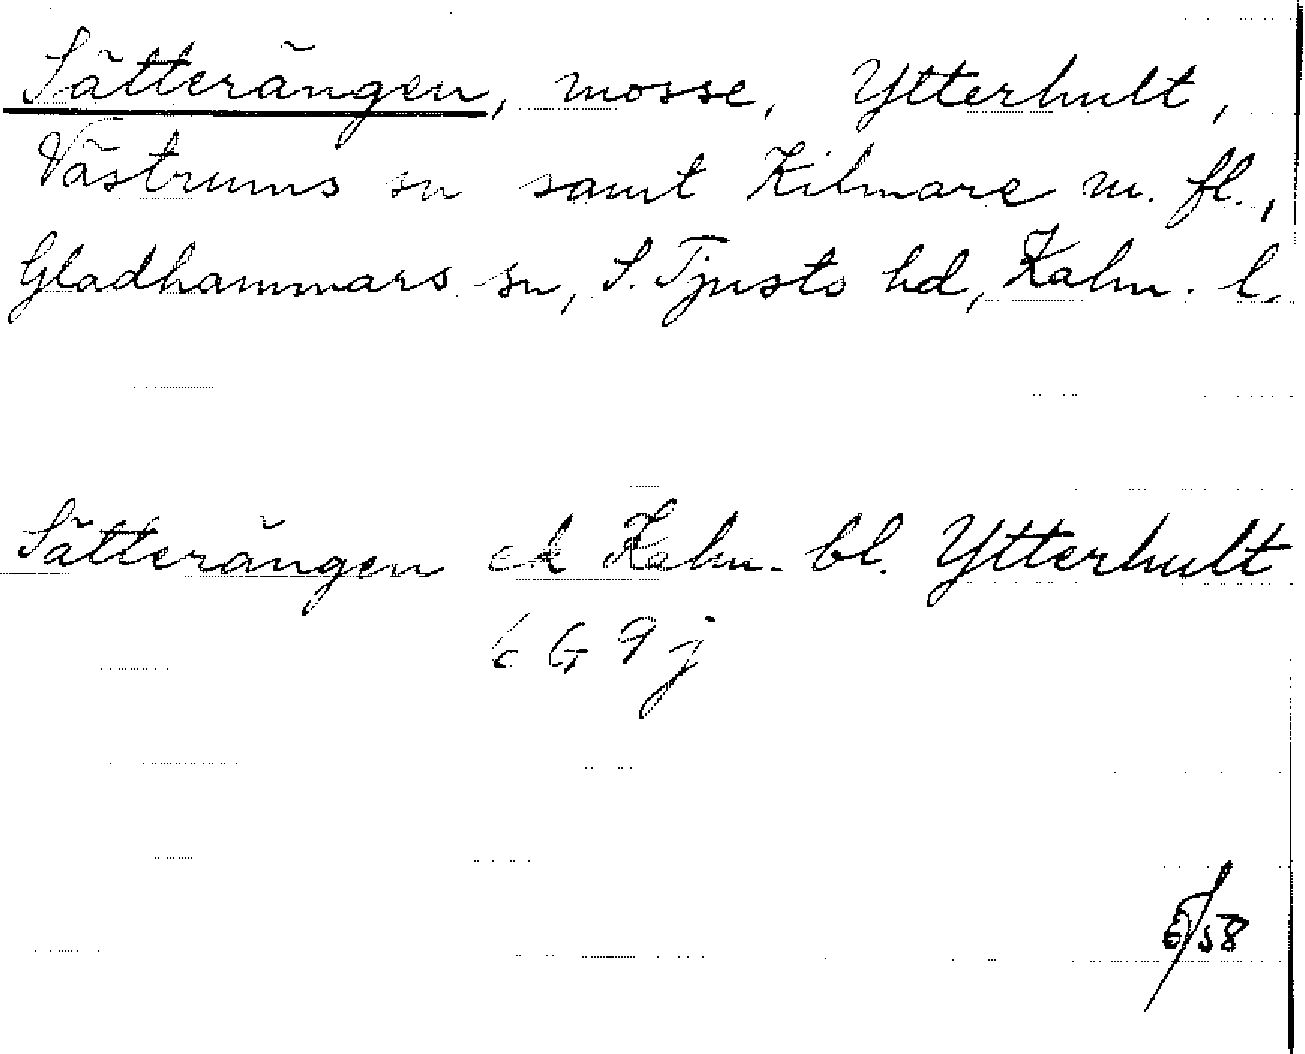 Sätterängen, mosse, Ytterhult,
Västrums sn samt Kilmare m. fl.,
Gladhammars sn, S. Tjusts hd, Kalm. l.
Sätterängen ek Kalm. bl. Ytterhult
6 G 9 j
/58